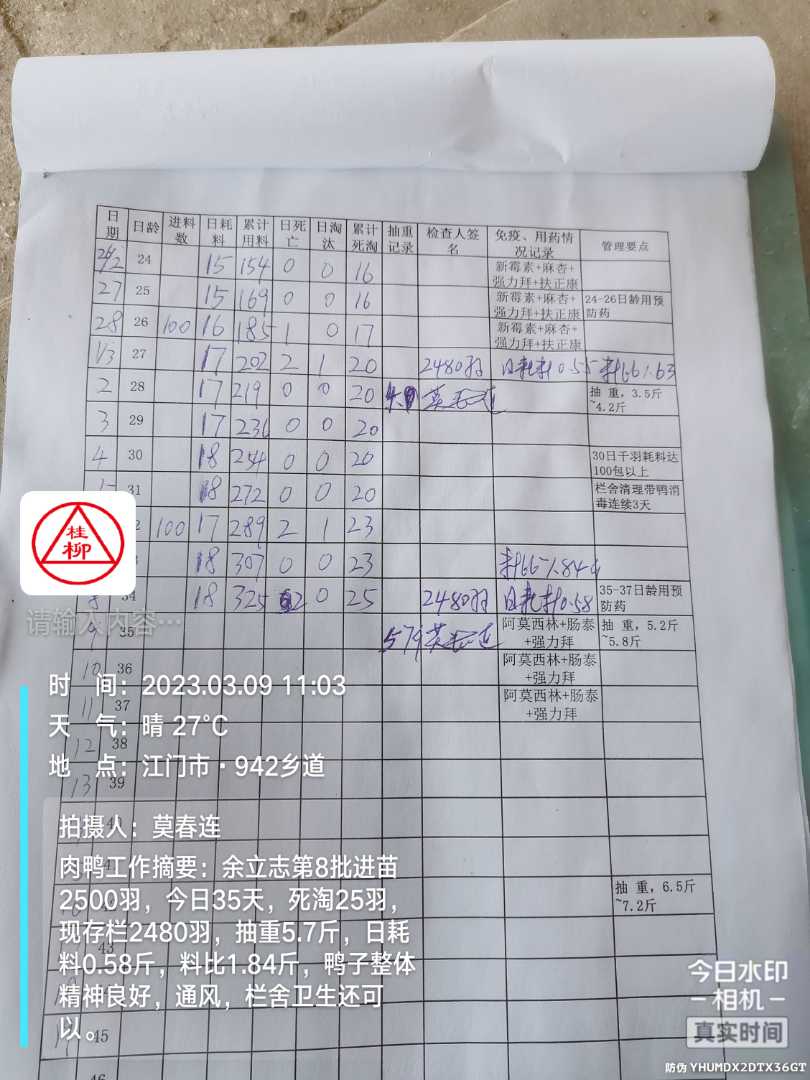 日期 日龄 进料数 日耗料 累计用料 日死亡 日淘汰 累计死淘 抽重记录 检查人签名 免疫、用药情况记录 管理要点
26/2 24 15 154 0 0 16 新霉素+麻杏+强力拜+扶正康
27 25 15 169 0 0 16 新霉素+麻杏+强力拜+扶正康 24-26日龄用预防药
28 26 100 16 185 1 0 17 新霉素+麻杏+强力拜+扶正康
1/3 27 17 202 2 1 20 2480羽 日耗料0.55 料比1.63
2 28 17 219 0 0 20 抽 重，3.5斤~4.2斤
3 29 17 236 0 0 20
4 30 18 254 0 0 20 30日千羽耗料达100包以上
31 18 272 0 0 20 栏舍清理带鸭消毒连续3天
100 17 289 2 1 23
18 307 0 0 23 料比1.84
8 34 18 325 2 0 25 2480羽 日耗料0.58 35-37日龄用预防药
9 35 阿莫西林+肠泰+强力拜 抽 重，5.2斤~5.8斤
10 36 阿莫西林+肠泰+强力拜
11 37 阿莫西林+肠泰+强力拜
12 38
13 39
抽 重，6.5斤~7.2斤
43
45
46
桂柳
请输入内容…
时 间：2023.03.09 11:03
天 气：晴 27°C
地 点：江门市·942乡道
拍摄人：莫春连
肉鸭工作摘要：余立志第8批进苗
2500羽，今日35天，死淘25羽，
现存栏2480羽，抽重5.7斤，日耗
料0.58斤，料比1.84斤，鸭子整体
精神良好，通风，栏舍卫生还可
以。
今日水印
-相机-
真实时间
防伪 YHUMDX2DTX36GT